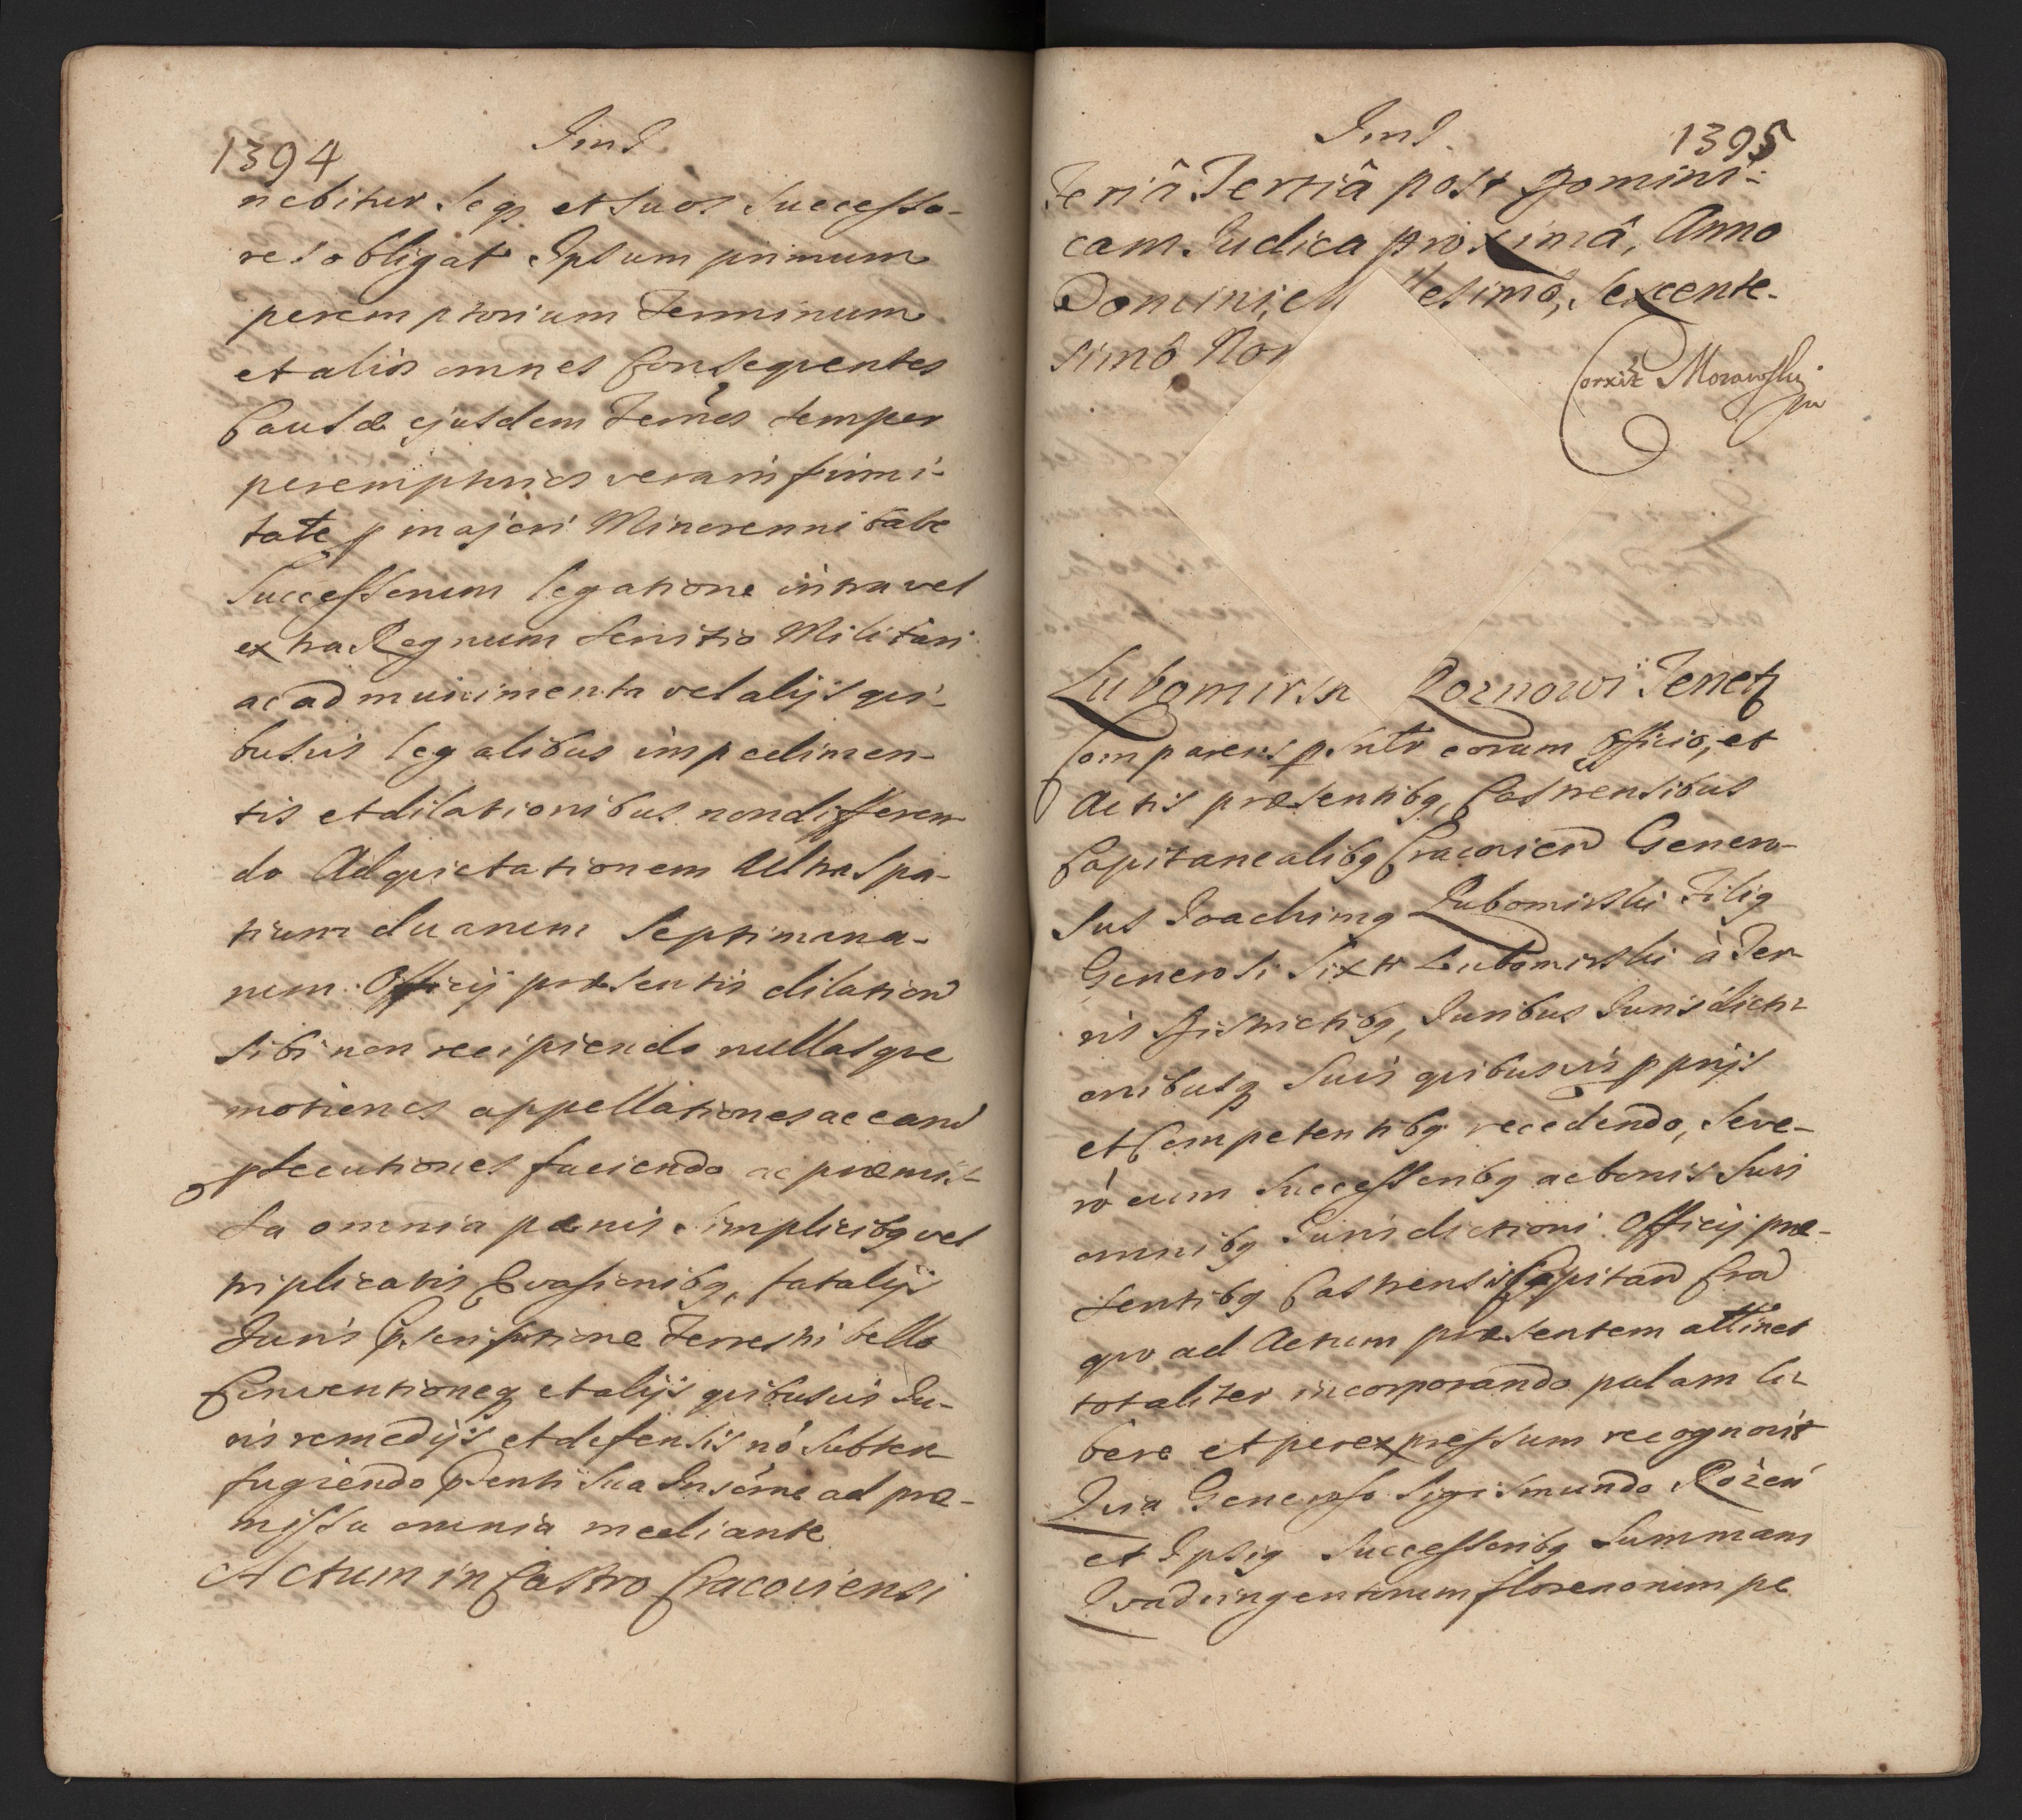 1394
Ind
nebitur seq3 et suos Successo-
res obligat Ipsum primum
peremptorium Terminum
et alios omnes Consequentes
Causæ ejusdem Termos semper
peremptorios vera infirmi-
tate p majori Minorennitate
Successorum legatione intra vel
extra Regnum servitio Militari
ac ad munimenta vel alijs qui-
busvis legalibus impedimen-
tis et dilationibus non differen-
do Ad quietationem Ultra spa-
tium duarum Septimana-
rum Officij præsentis dilation
sibi non recipiendo nullasque
motiones appellationes ac earu
psecutiones faciendo ac præmis-
sa omnia pænis simplicibq vel
triplicatis Evasionibq, fatalijs
Juris Pscriptione Terrestri bello
Conventioneq et alijs quibusvis Ju-
ris remedijs et defensis nō subter
fugiendo Psenti sua Inscrne ad præ-
missa omnia mediante
Actum in Castro Cracoviensi
Ind.
1395
Feriâ Tertiâ post Domini-
cam Judica proximâ, Anno
Domini, M lesimô, sexcente-
simô Non
Corxit Morawski
mp
Lubomirsk Roznowi Tenetr
Comparens psntr coram Officio, et
Actis præsentibq, Castrensibus
Capitanealibq Cracovien Genero-
sus Joachimq Lubomirski Filiq
Generosi Sixti Lubomirski à Ter
ris Districtibq, Juribus Jurisdicti-
onibusq suis quibusvis pprijs
et Competentibq recedendo, seve-
rò cum Successoribq ac bonis suis
omnibq Jurisdictioni Officij præ-
sentibq Castrensis Capitan Cra
quo ad Actum præsentem attinet
totaliter incorporando palam li-
bere et per expressum recognovit
Quia Generoso Sigismundo Rożen
et Ipsiq Successoribq Summam
Quadringentorum florenorum pe